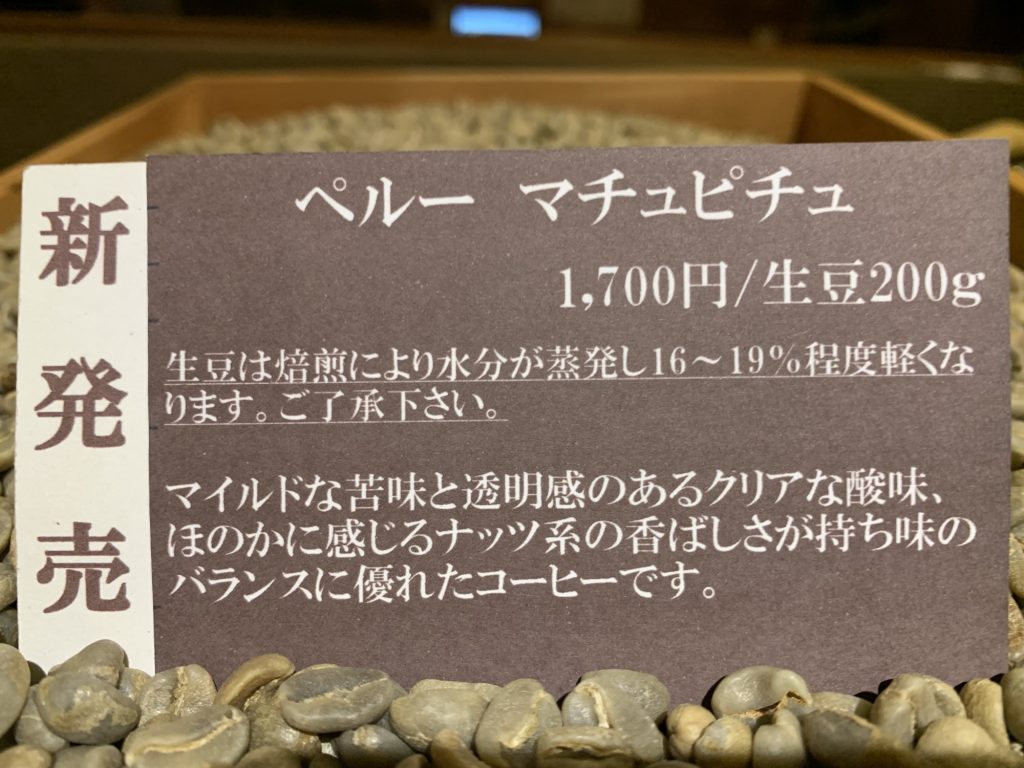 新発売
ペルー　マチュピチュ
1,700円/生豆200g
生豆は焙煎により水分が蒸発し16～19%程度軽くな
ります。ご了承下さい。
マイルドな苦味と透明感のあるクリアな酸味、
ほのかに感じるナッツ系の香ばしさが持ち味の
バランスに優れたコーヒーです。